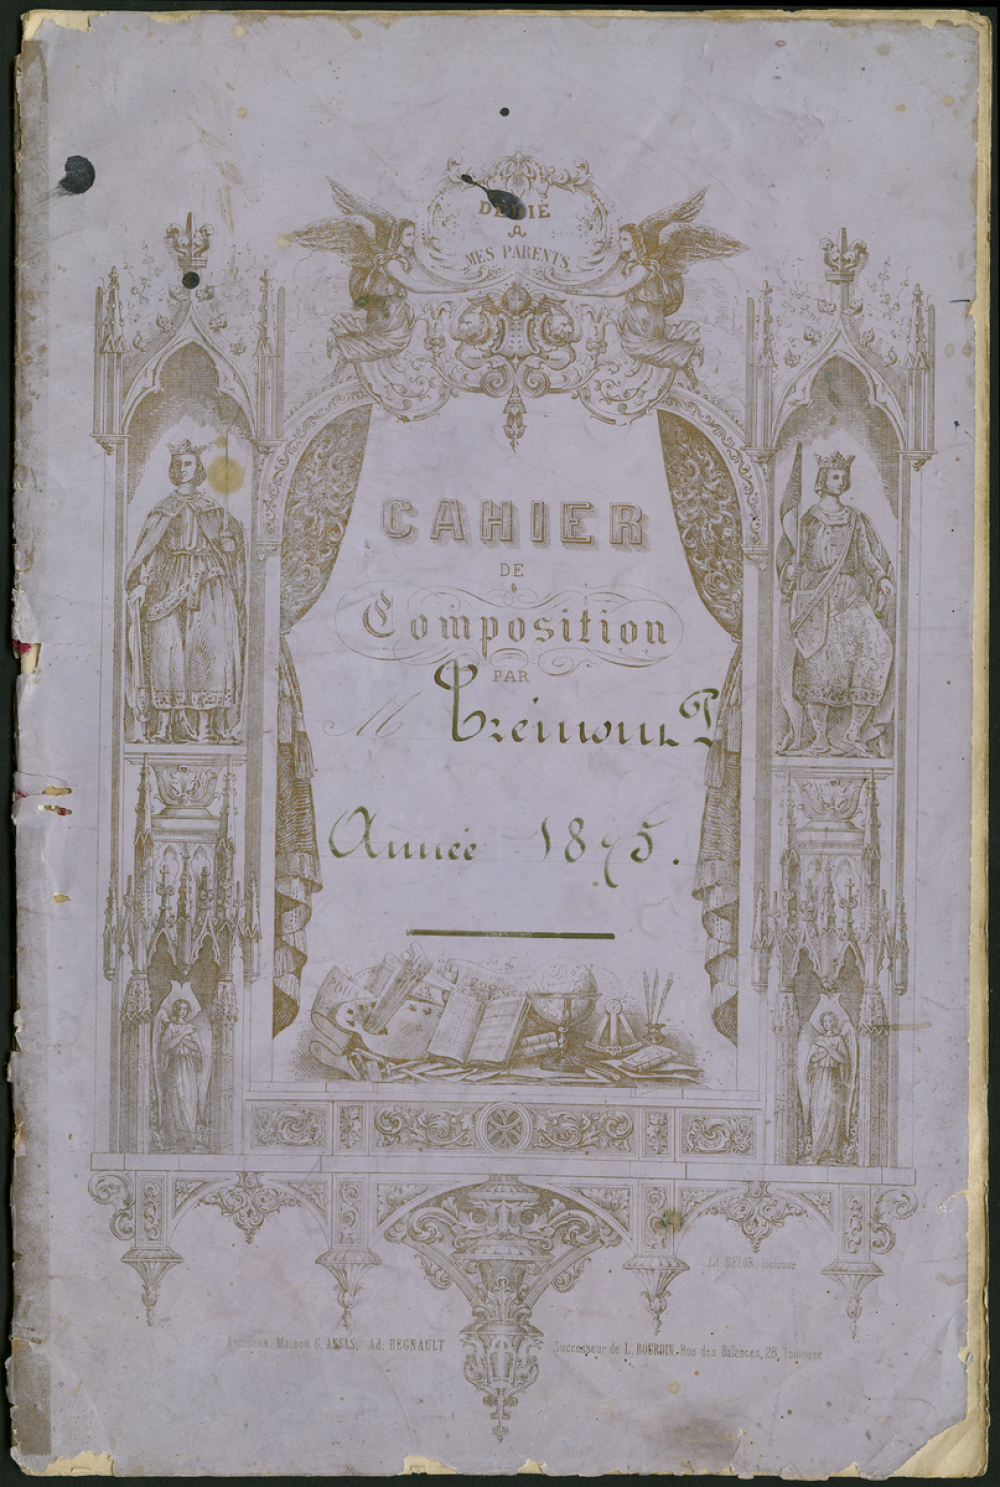 DÉDIÉ
A
MES PARENTS
CAHIER
DE
Composition
PAR
M Trémont P
Année 1875.
Lit. DELOR, Toulouse
Ancienne Maison G. ASSAS, Ad. REGNAULT
Successeur de L. BOURDIN, Rue des Balances, 28, Toulouse